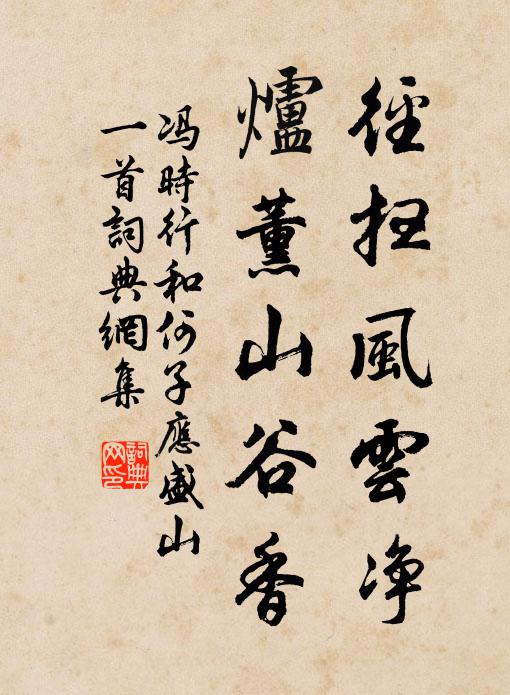 徑扫風雲净
爐薰山谷香
冯時行和何子應盛山
一首詞典網集
詞典
网印